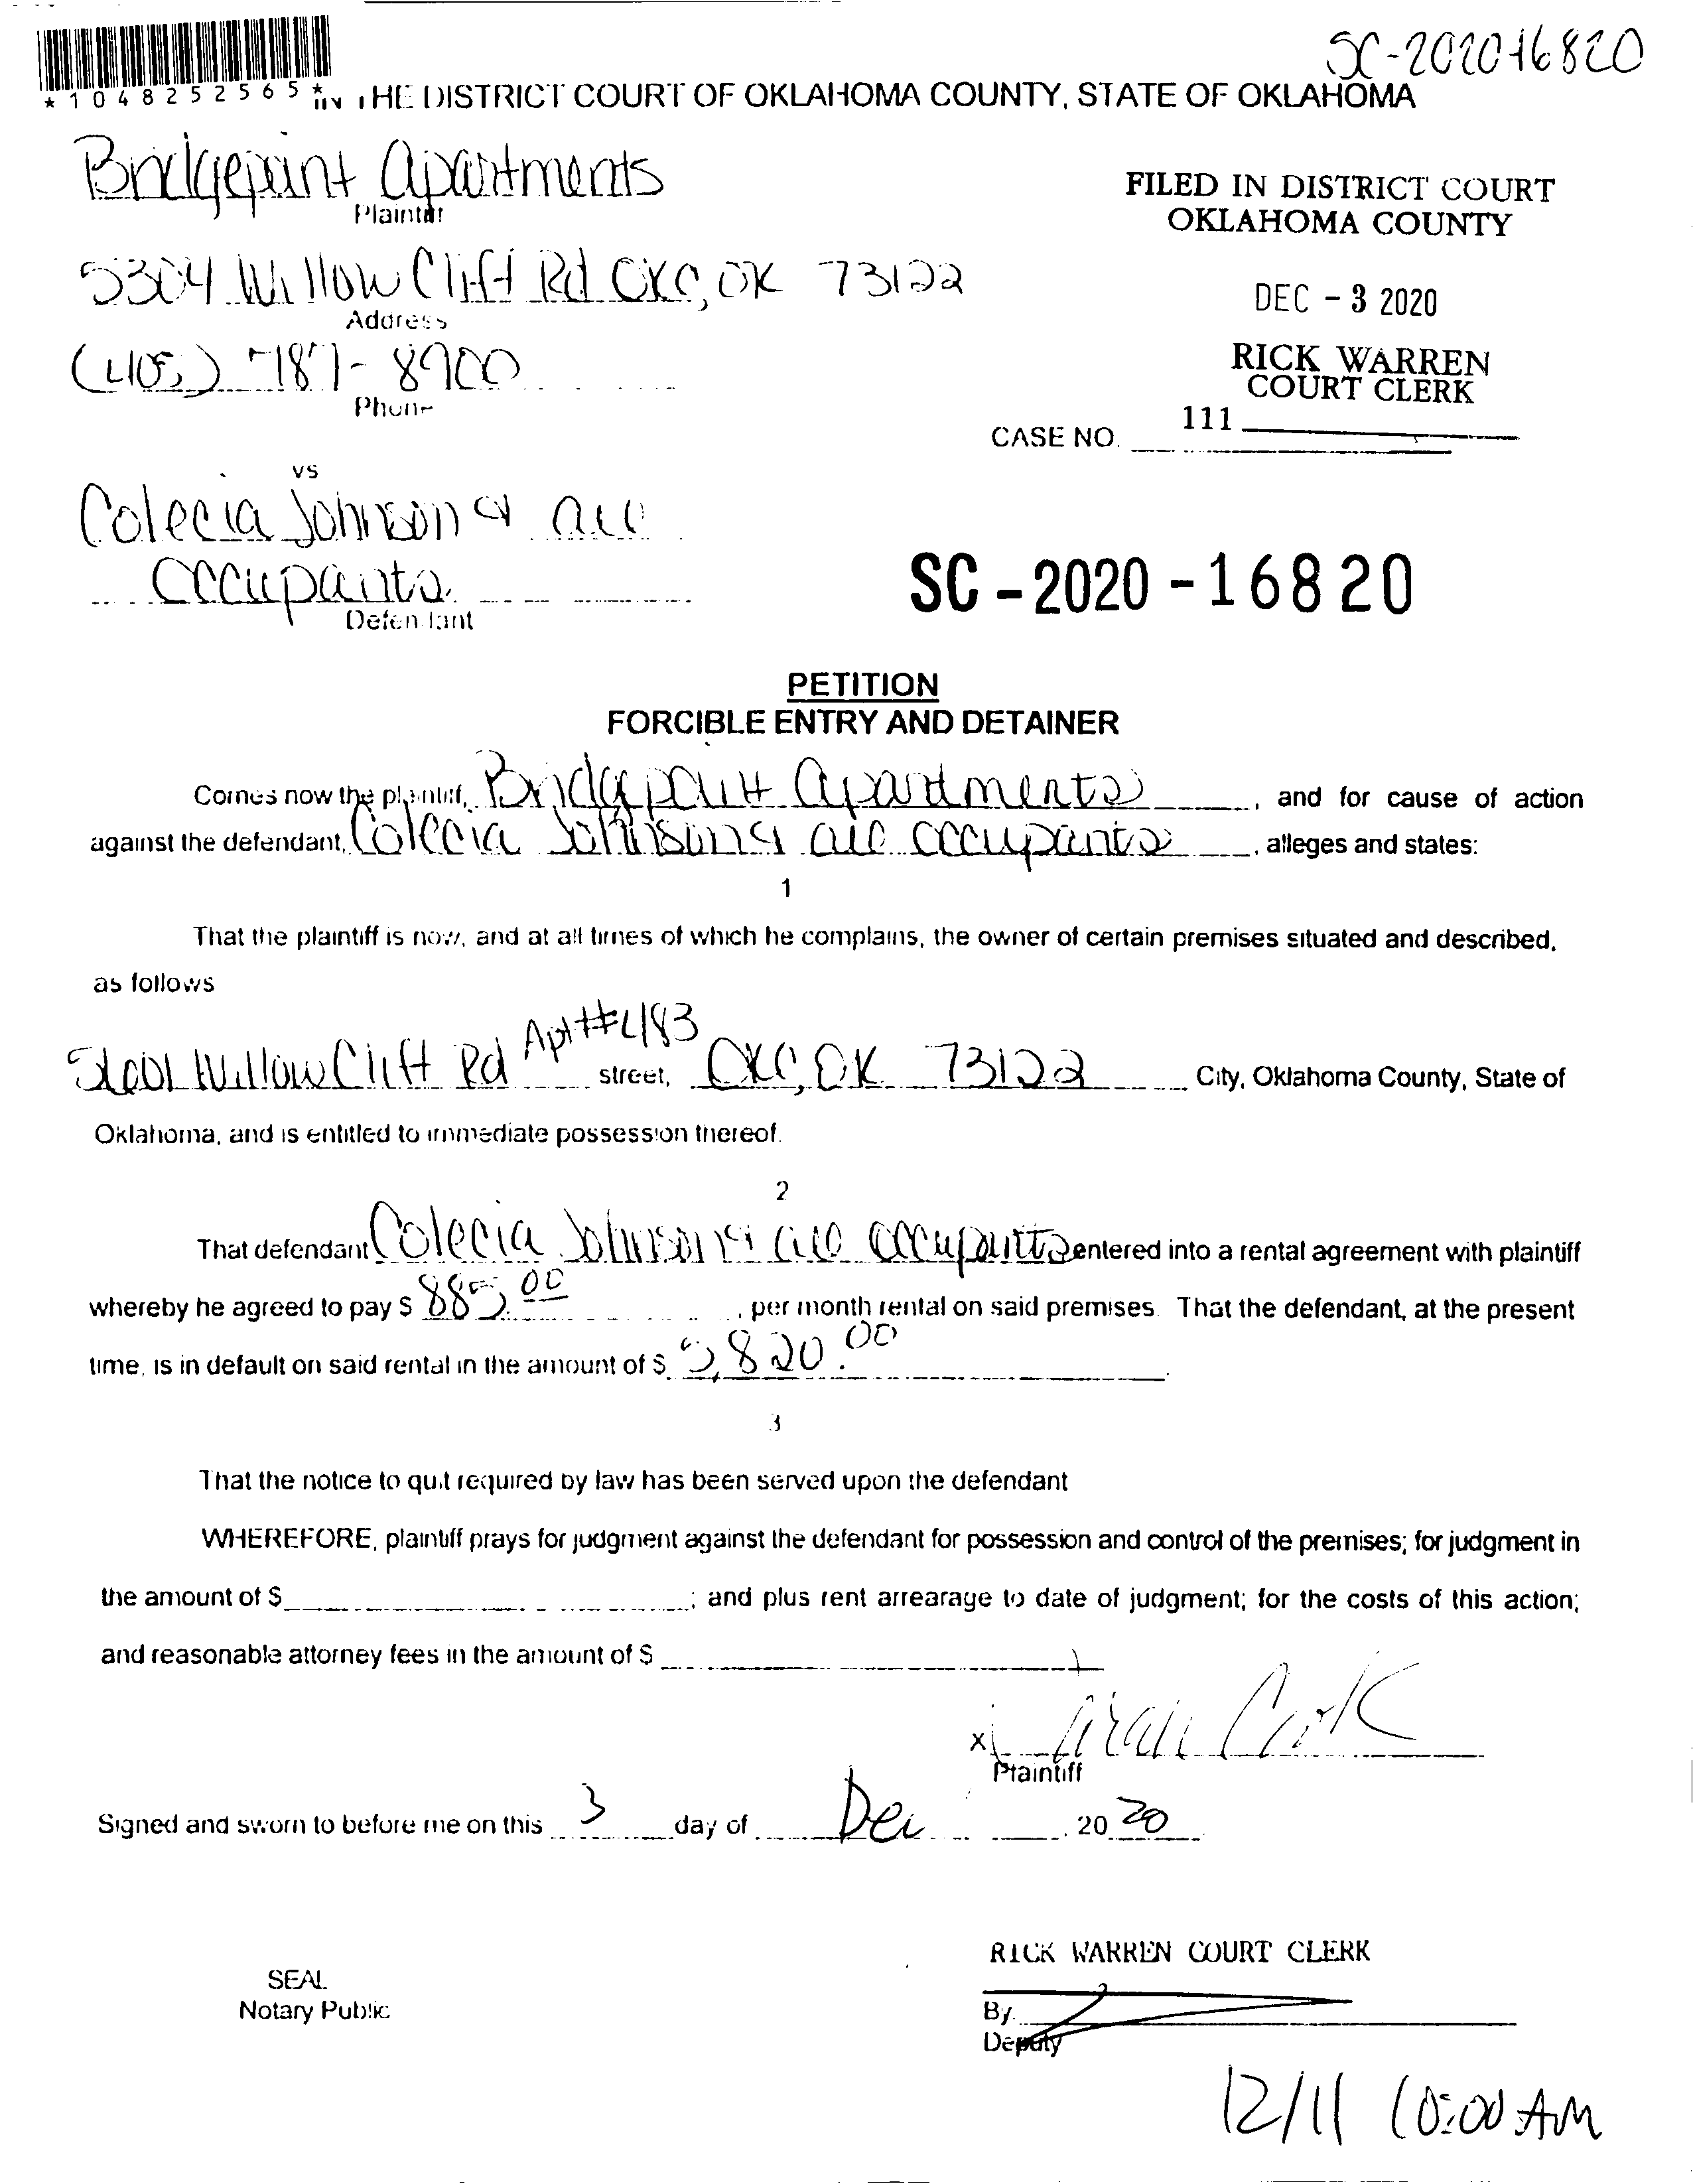 SC-2020-16820
*1048252565*
IN THE DISTRICT COURT OF OKLAHOMA COUNTY, STATE OF OKLAHOMA
Bridgepoint Apartments
Plaintiff
5304 Willow Cliff Rd OKC, OK 73122
Address
(405) 787-8900
Phone
FILED IN DISTRICT COURT
OKLAHOMA COUNTY
DEC - 3 2020
RICK WARREN
COURT CLERK
111
CASE NO.
vs
Colecia Johnson & all
Occupants
Defendant
SC-2020-16820
PETITION
FORCIBLE ENTRY AND DETAINER
Comes now the plaintiff, Bridgepoint Apartments, and for cause of action
against the defendant, Colecia Johnson & all occupants, alleges and states:
1
That the plaintiff is now, and at all times of which he complains, the owner of certain premises situated and described,
as follows
Willow Cliff Rd Apt #483 street, OKC, OK 73122 City, Oklahoma County, State of
Oklahoma, and is entitled to immediate possession thereof.
2
That defendant Colecia Johnson & all occupants entered into a rental agreement with plaintiff
whereby he agreed to pay $ 885.00, per month rental on said premises. That the defendant, at the present
time, is in default on said rental in the amount of $ 5,820.00
3
That the notice to quit required by law has been served upon the defendant
WHEREFORE, plaintiff prays for judgment against the defendant for possession and control of the premises; for judgment in
the amount of $ ; and plus rent arrearage to date of judgment; for the costs of this action;
and reasonable attorney fees in the amount of $
x Cook
Plaintiff
Signed and sworn to before me on this 3 day of Dec, 2020
RICK WARREN COURT CLERK
SEAL
Notary Public
By
Deputy
12/11 10:00 AM